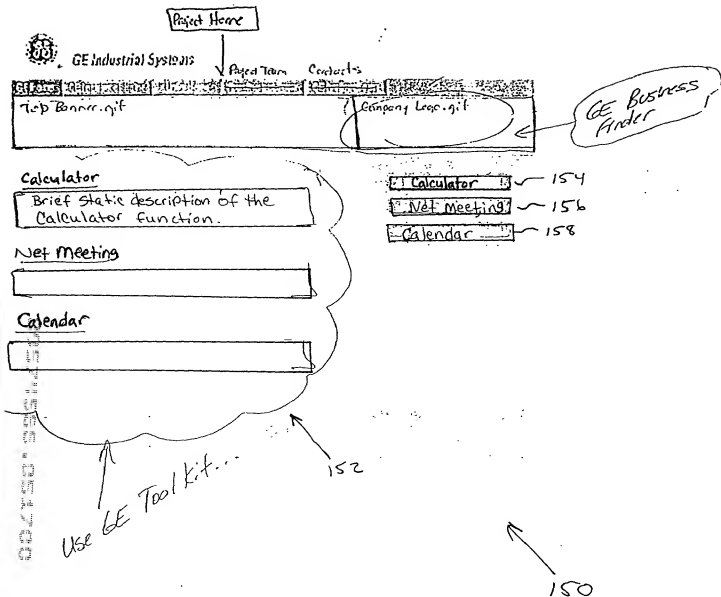 Project Home
GE Industrial Systems
Project Team Contacts
Top Banner.gif
Company Logo.gif
GE Business
Finder
Calculator
Brief static description of the
Calculator function.
Net Meeting
Calendar
Calculator 154
Net Meeting 156
Calendar 158
152
Use GE Toolkit...
150